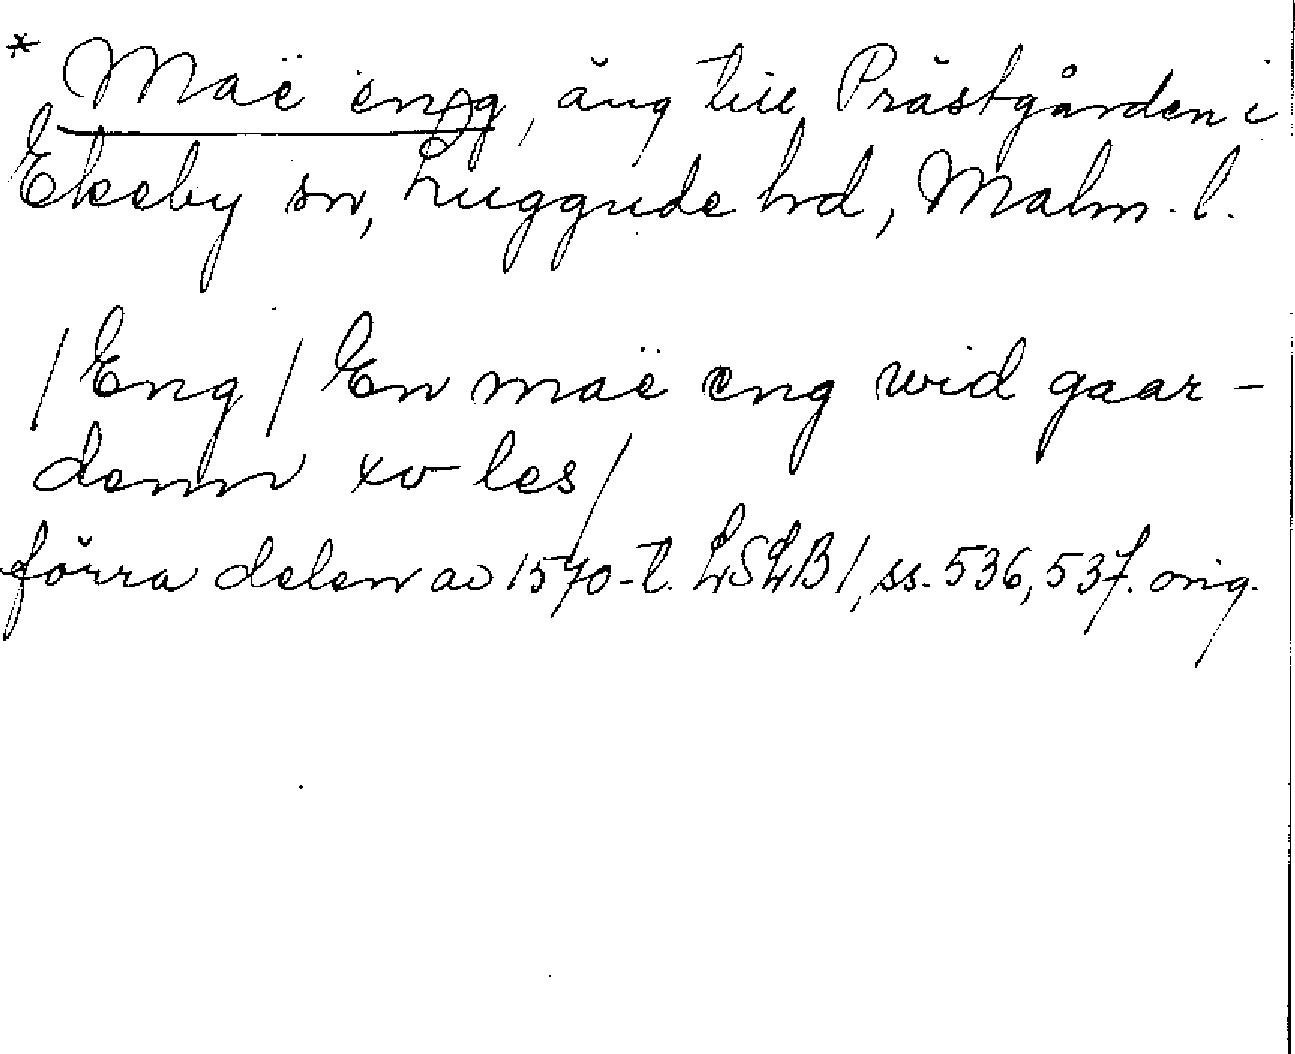 * Maë eng, äng till Prästgården i
Ekeby sn, Luggude hd, Malm. l.
/Eng/ En maë eng wid gaar-
denn xv les/
förra delen av 1570-t. LSLB 1, ss. 536, 537. orig.